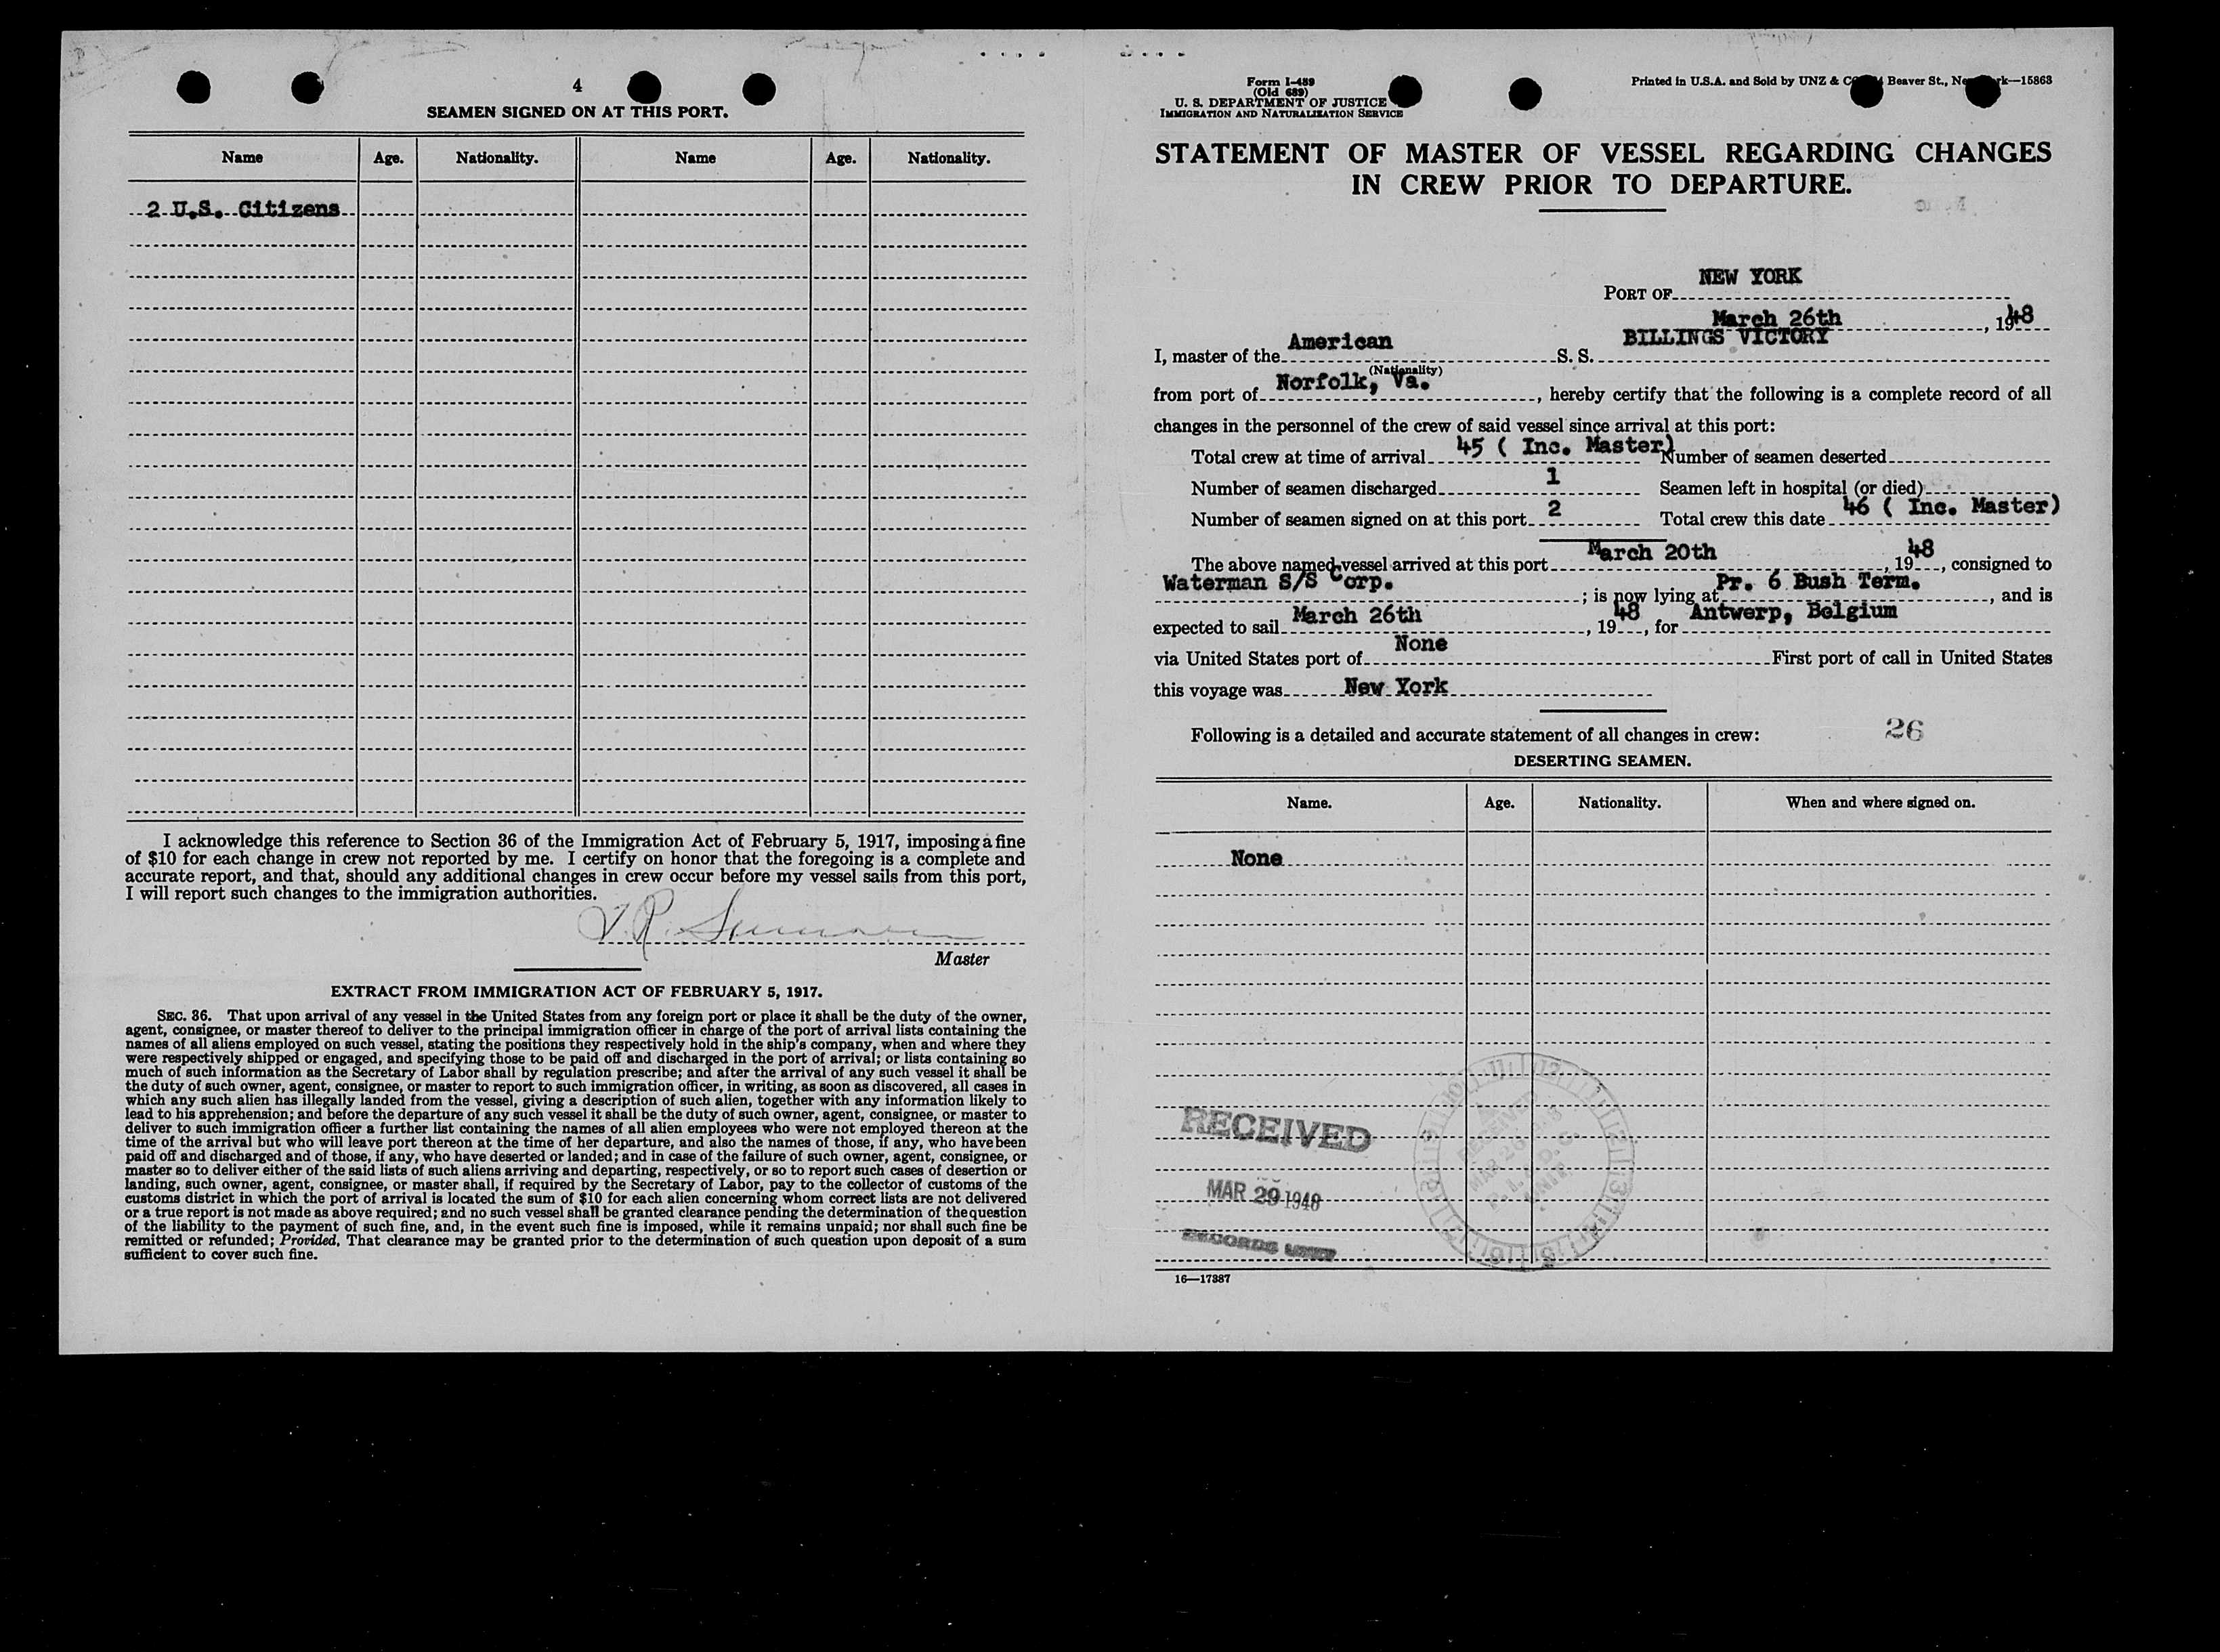 4
SEAMEN SIGNED ON AT THIS PORT.
Name Age. Nationality. Name Age. Nationality.
2 U.S. Citizens
I acknowledge this reference to Section 36 of the Immigration Act of February 5, 1917, imposing a fine
of $10 for each change in crew not reported by me. I certify on honor that the foregoing is a complete and
accurate report, and that, should any additional changes in crew occur before my vessel sails from this port,
I will report such changes to the immigration authorities.
Master
EXTRACT FROM IMMIGRATION ACT OF FEBRUARY 5, 1917.
SEC. 36. That upon arrival of any vessel in the United States from any foreign port or place it shall be the duty of the owner,
agent, consignee, or master thereof to deliver to the principal immigration officer in charge of the port of arrival lists containing the
names of all aliens employed on such vessel, stating the positions they respectively hold in the ship's company, when and where they
were respectively shipped or engaged, and specifying those to be paid off and discharged in the port of arrival; or lists containing so
much of such information as the Secretary of Labor shall by regulation prescribe; and after the arrival of any such vessel it shall be
the duty of such owner, agent, consignee, or master to report to such immigration officer, in writing, as soon as discovered, all cases in
which any such alien has illegally landed from the vessel, giving a description of such alien, together with any information likely to
lead to his apprehension; and before the departure of any such vessel it shall be the duty of such owner, agent, consignee, or master to
deliver to such immigration officer a further list containing the names of all alien employees who were not employed thereon at the
time of the arrival but who will leave port thereon at the time of her departure, and also the names of those, if any, who have been
paid off and discharged and of those, if any, who have deserted or landed; and in case of the failure of such owner, agent, consignee, or
master so to deliver either of the said lists of such aliens arriving and departing, respectively, or so to report such cases of desertion or
landing, such owner, agent, consignee, or master shall, if required by the Secretary of Labor, pay to the collector of customs of the
customs district in which the port of arrival is located the sum of $10 for each alien concerning whom correct lists are not delivered
or a true report is not made as above required; and no such vessel shall be granted clearance pending the determination of the question
of the liability to the payment of such fine, and, in the event such fine is imposed, while it remains unpaid; nor shall such fine be
remitted or refunded; Provided, That clearance may be granted prior to the determination of such question upon deposit of a sum
sufficient to cover such fine.
Form I-489
(Old 689)
U. S. DEPARTMENT OF JUSTICE
IMMIGRATION AND NATURALIZATION SERVICE
Printed in U.S.A. and Sold by UNZ & Beaver St., 15863
STATEMENT OF MASTER OF VESSEL REGARDING CHANGES
IN CREW PRIOR TO DEPARTURE.
PORT OF NEW YORK
March 26th, 1948
I, master of the American S. S. BILLINGS VICTORY
(Nationality)
from port of Norfolk, Va., hereby certify that the following is a complete record of all
changes in the personnel of the crew of said vessel since arrival at this port:
Total crew at time of arrival 45 ( Inc. Master) Number of seamen deserted
Number of seamen discharged 1 Seamen left in hospital (or died)
Number of seamen signed on at this port 2 Total crew this date 46 ( Inc. Master)
The above named vessel arrived at this port March 20th, 1948, consigned to
Waterman S/S Corp.; is now lying at Pr. 6 Bush Term., and is
expected to sail March 26th, 1948, for Antwerp, Belgium
via United States port of None First port of call in United States
this voyage was New York
Following is a detailed and accurate statement of all changes in crew: 26
DESERTING SEAMEN.
Name. Age. Nationality. When and where signed on.
None
RECEIVED
MAR 29 1948
RECORDS UNIT
RECEIVED
MAR 26
UNIT
16—17387